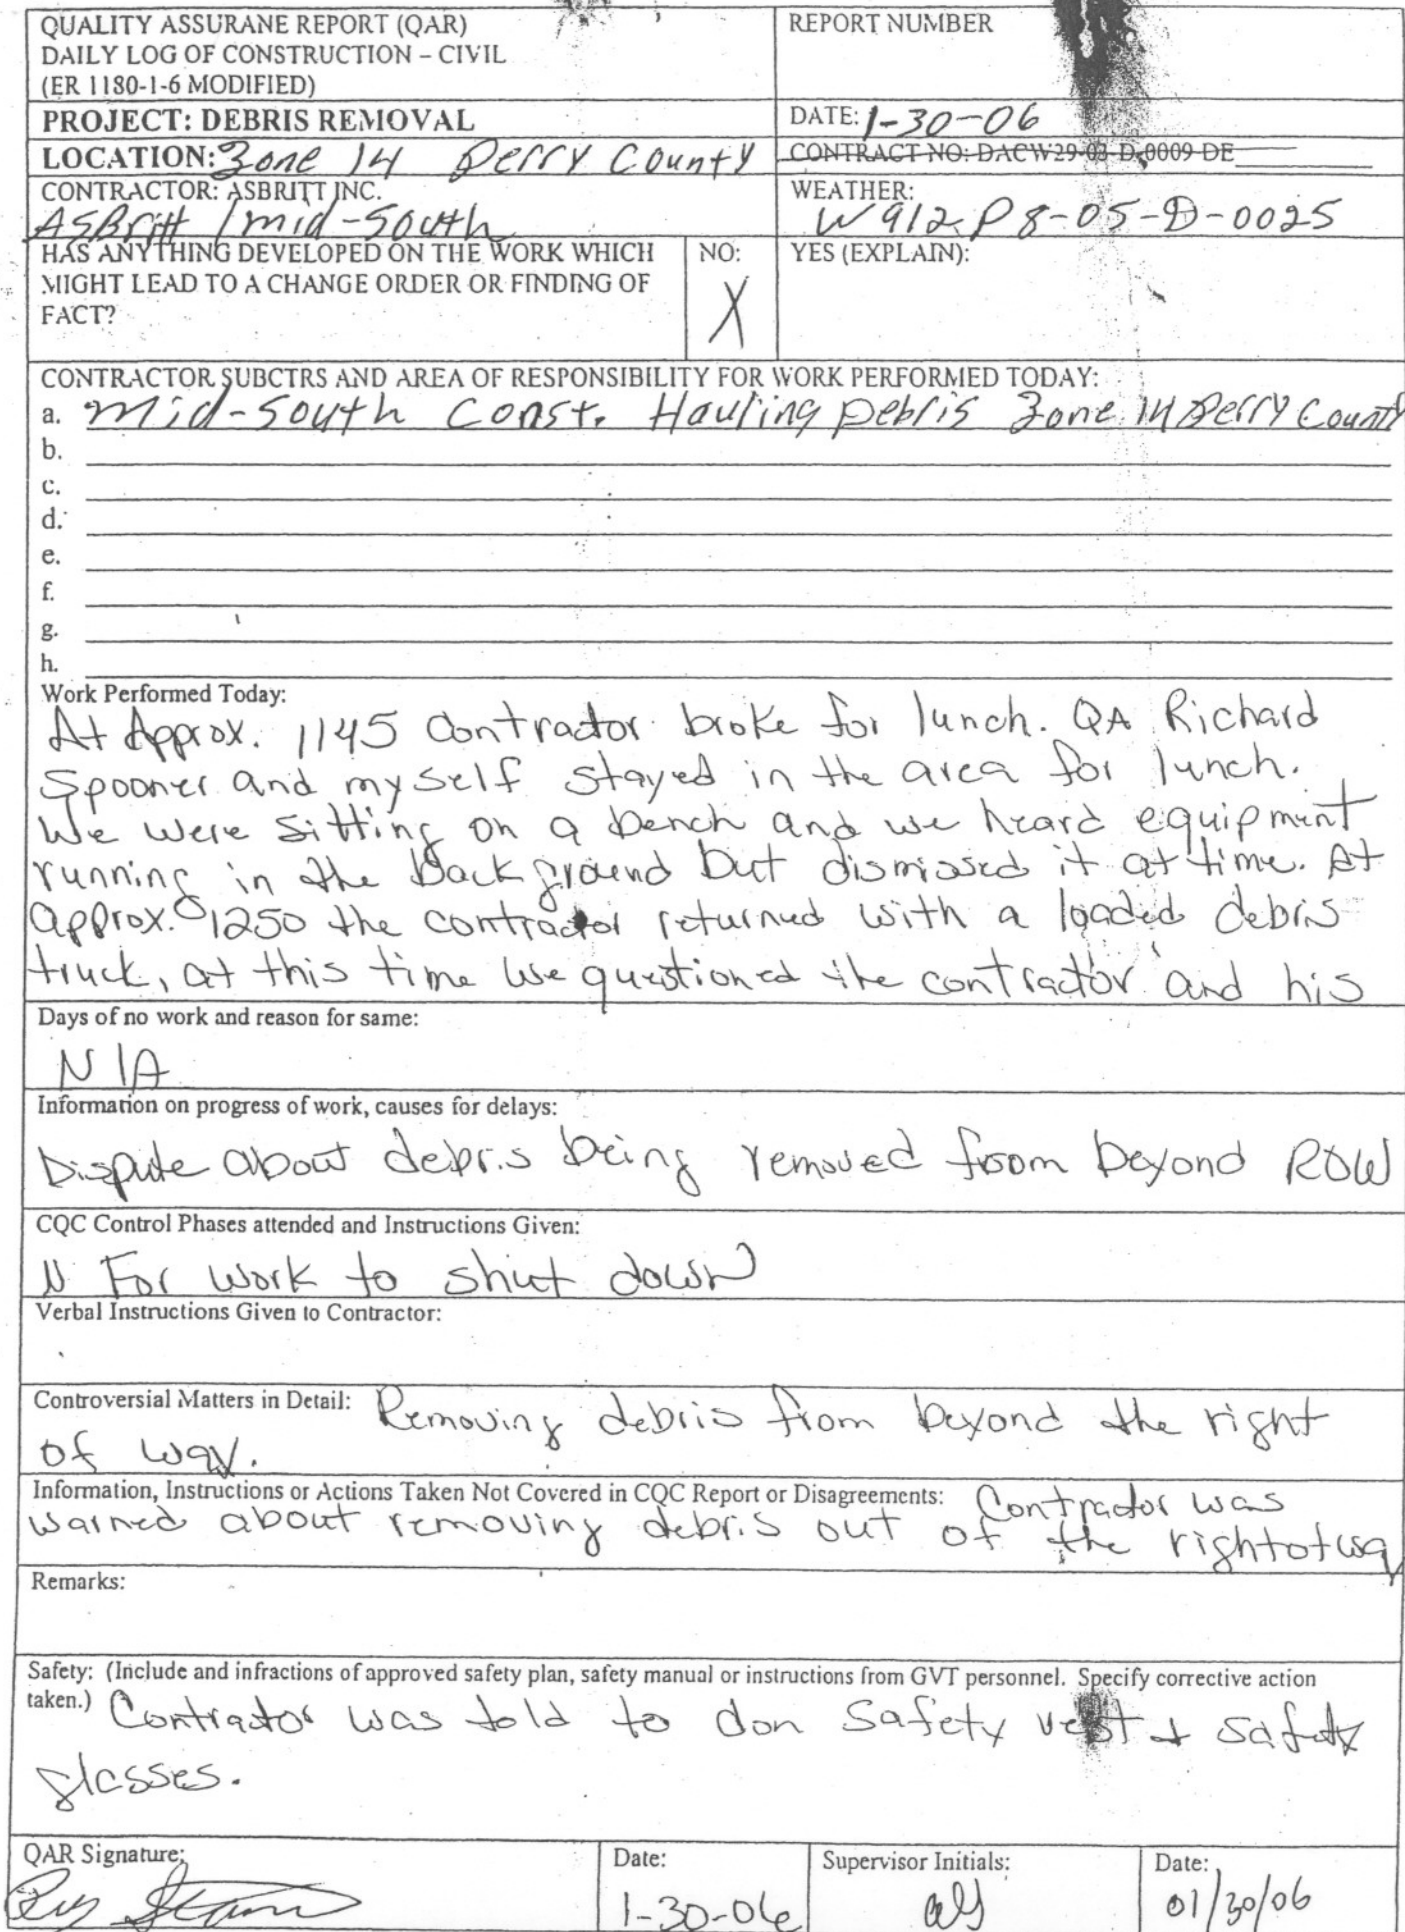 QUALITY ASSURANE REPORT (QAR)
DAILY LOG OF CONSTRUCTION – CIVIL
(ER 1180-1-6 MODIFIED)
REPORT NUMBER
PROJECT: DEBRIS REMOVAL
DATE: 1-30-06
LOCATION: Zone 14 Perry County
CONTRACT NO: DACW29-03-D-0009-DE
CONTRACTOR: ASBRITT INC.
AsBritt / mid-South
WEATHER:
W912P8-05-D-0025
HAS ANYTHING DEVELOPED ON THE WORK WHICH
MIGHT LEAD TO A CHANGE ORDER OR FINDING OF
FACT?
NO:
X
YES (EXPLAIN):
CONTRACTOR SUBCTRS AND AREA OF RESPONSIBILITY FOR WORK PERFORMED TODAY:
a. Mid-South Const. Hauling Debris Zone 14 Perry County
b.
c.
d.
e.
f.
g.
h.
Work Performed Today:
At Approx. 1145 Contractor broke for lunch. QA Richard
Spooner and myself stayed in the area for lunch.
We were sitting on a bench and we heard equipment
running in the Background but dismissed it at time. At
approx. 1250 the contractor returned with a loaded debris
truck, at this time we questioned the contractor and his
Days of no work and reason for same:
N/A
Information on progress of work, causes for delays:
Dispute about debris being removed from beyond ROW
CQC Control Phases attended and Instructions Given:
N For work to shut down
Verbal Instructions Given to Contractor:
Controversial Matters in Detail: Removing debris from beyond the right
of way.
Information, Instructions or Actions Taken Not Covered in CQC Report or Disagreements: Contractor was
warned about removing debris out of the rightofway
Remarks:
Safety: (Include and infractions of approved safety plan, safety manual or instructions from GVT personnel. Specify corrective action
taken.) Contractor was told to don safety vest + safety
glasses.
QAR Signature:
Date:
1-30-06
Supervisor Initials:
Date:
01/30/06